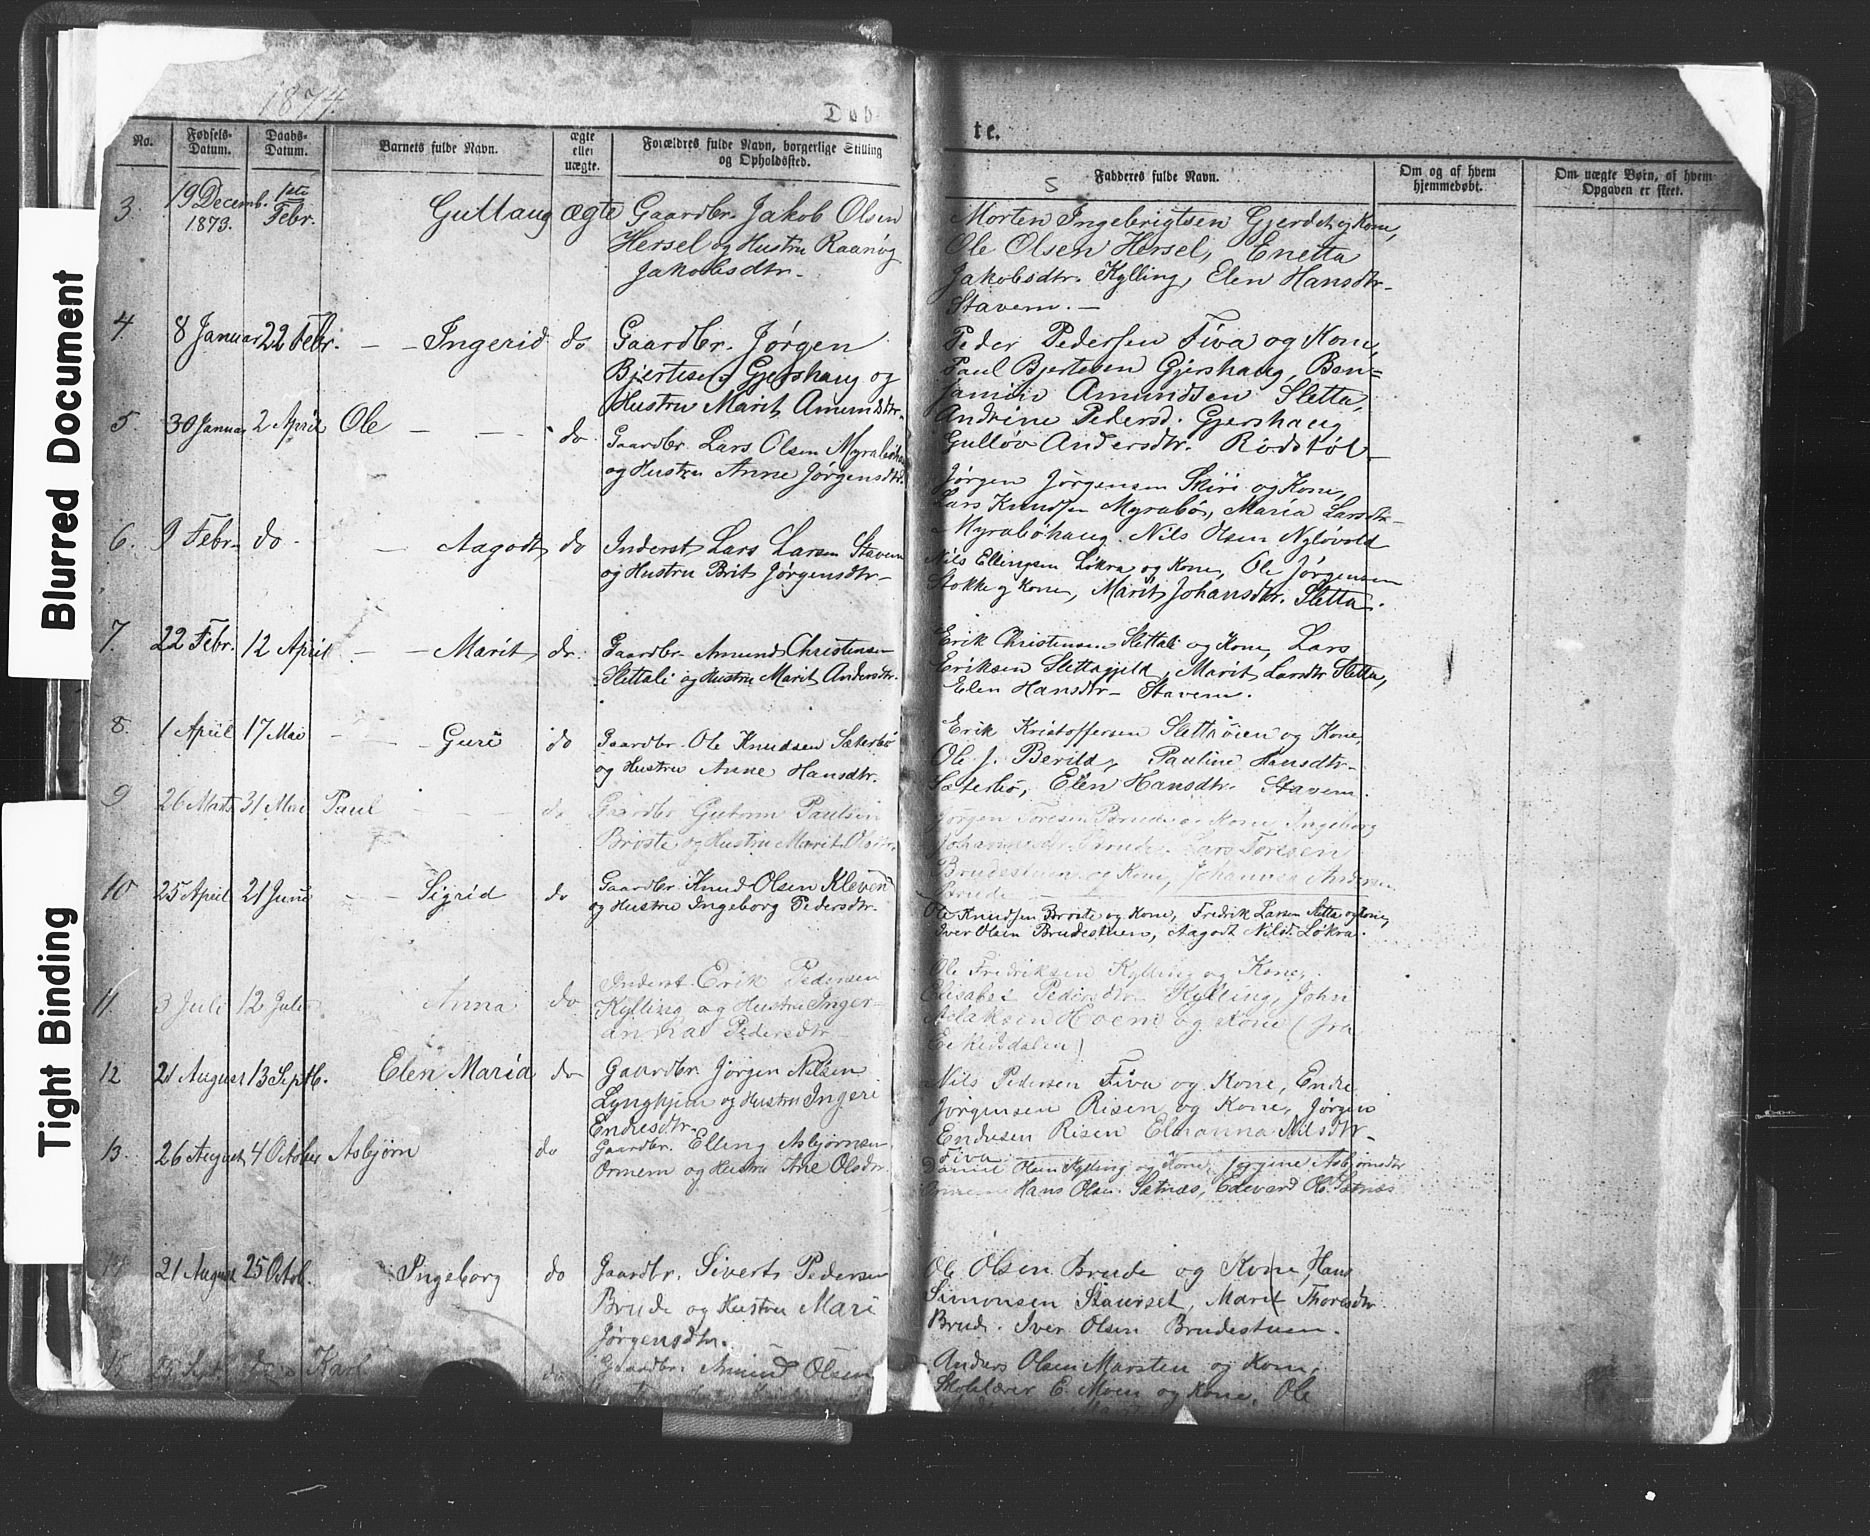 Blurred Document
Tight Binding
1874.
Døb
te.
5
No.
Fødsels-
Datum.
Daabs-
Datum.
Barnets fulde Navn.
ægte
eller
uægte.
Forældres fulde Navn, borgerlige Stilling
og Opholdssted.
Fadderes fulde Navn.
Om og af hvem
hjemmedøbt.
Om uægte Børn, af hvem
Opgaven er skeet.
3. 19 Decemb. 1ste Gullaug ægte Gaardbr. Jakob Olsen
1873. Febr. Hersel og Hustru Raanøg
Jakobsdtr.
Morten Ingebrigtsen Gjerdet og Kone,
Ole Olsen Hersel, Enetta
Jakobsdtr. Kylling, Elen Hansdtr
Stavem. —
4 8 Januar 22 Febr. — — Ingerid do Gaardbr. Jørgen
Bjertesen Gjershaug og
Hustru Marit Amundsdtr.
Peder Pedersen Fiva og Kone,
Paul Bjertesen Gjershaug, Ben=
jamin Amundsen Sletta,
Andrine Pedersd. Gjershaug
Gulløv Andersdtr. Rødstøl
5. 30 Januar 2 April Ole — — do Gaardbr. Lars Olsen
og Hustru Anne Jørgensdtr.
Jørgen Jørgensen Skiri og Kone,
Lars Knudsen Myrabø, Maria Larsdtr
Myrabøhaug. Nils Olsen
6. 9 Febr. do. — Aagodt do Inderst Lars Larsen Stavem
og Hustru Brit Jørgensdtr
Nils Ellingsen Løkra og Kone, Ole Jørgensen
Stokke og Kone, Marit Johansdtr. Sletta.
7. 22 Febr. 12 April — — Marit do. Gaardbr. Amund Christensen
Slettali og Hustru Marit Andersdtr.
Erik Christensen Slettali og Kone, Lars
Eriksen Slettagjeld, Marit Larsdtr Sletta,
Elen Hansdtr Stavem.
8. 1 April 17 Mai — — Guri do Gaardbr. Ole Knudsen Sæterbø
og Hustru Anne Hansdtr.
Erik Kristoffersen Slettaøien og Kone,
Ole J. Berild, Pauline Hansdtr
Sæterbø, Elen Hansdtr. Stavem.
9 26 Marts 31 Mai Paul — — do Gaardbr Gutorm Paulsen
Brøste og Hustru Marit Olsdtr.
Jørgen Toresen Brude og Kone, Ingeborg
Johannesdtr Brude, Lars Toresen
Brudestuen og Kone, Johannes Andersen
Brude
10 25 April 21 Juni — — Sigrid do Gaardbr. Knud Olsen Kleven
og Hustru Ingeborg Pedersdtr.
Ole Knudsen Brøste og Kone, Fredrik Larsen Sletta og Kone,
Iver Olsen Brudestuen, Aagodt Nilsd. Løkra.
11. 3 Juli 12 Juli Anna do Inderst Erik Pedersen
Kylling og Hustru Inger-
Pedersdtr
Ole Fredriksen Kylling og Kone,
Elisabet Pedersdtr Kylling, John
Aslaksen Hoem og Kone (fra
Eikisdalen)
12 21 August 13 Septb. Elen Maria do Gaardbr Jørgen Nilsen
Lynghjem og Hustru Ingeri
Endresdtr.
Nils Pedersen Fiva og Kone, Endre
Jørgensen Risen og Kone, Jørgen
Endresen Risen Elmanna Nilsdtr
Fiva
13. 26 August 4 October Asbjørn do Gaardbr. Elling Asbjørnsen
Ormem og Hustru Ane Olsdtr.
Daniel Olsen Kylling og Kone, Jørgine Asbjørnsdtr
Ormem Hans Olsen Sætnæs, Edevard Ol. Sætnæs
14 21 August 25 Octob. Ingeborg do Gaardbr. Siverts Pedersen
Brude og Hustru Mari
Jørgensdtr.
Ole Olsen Brude og Kone, Hans
Simonsen Staurset, Marit Thoresdtr.
Brude. Iver Olsen Brudestuen.
15 25 Sept. do Karl do Gaardbr. Amund Olsen
Anders Olsen Marsten og Kone,
Skolelærer E. Moen og Kone, Ole